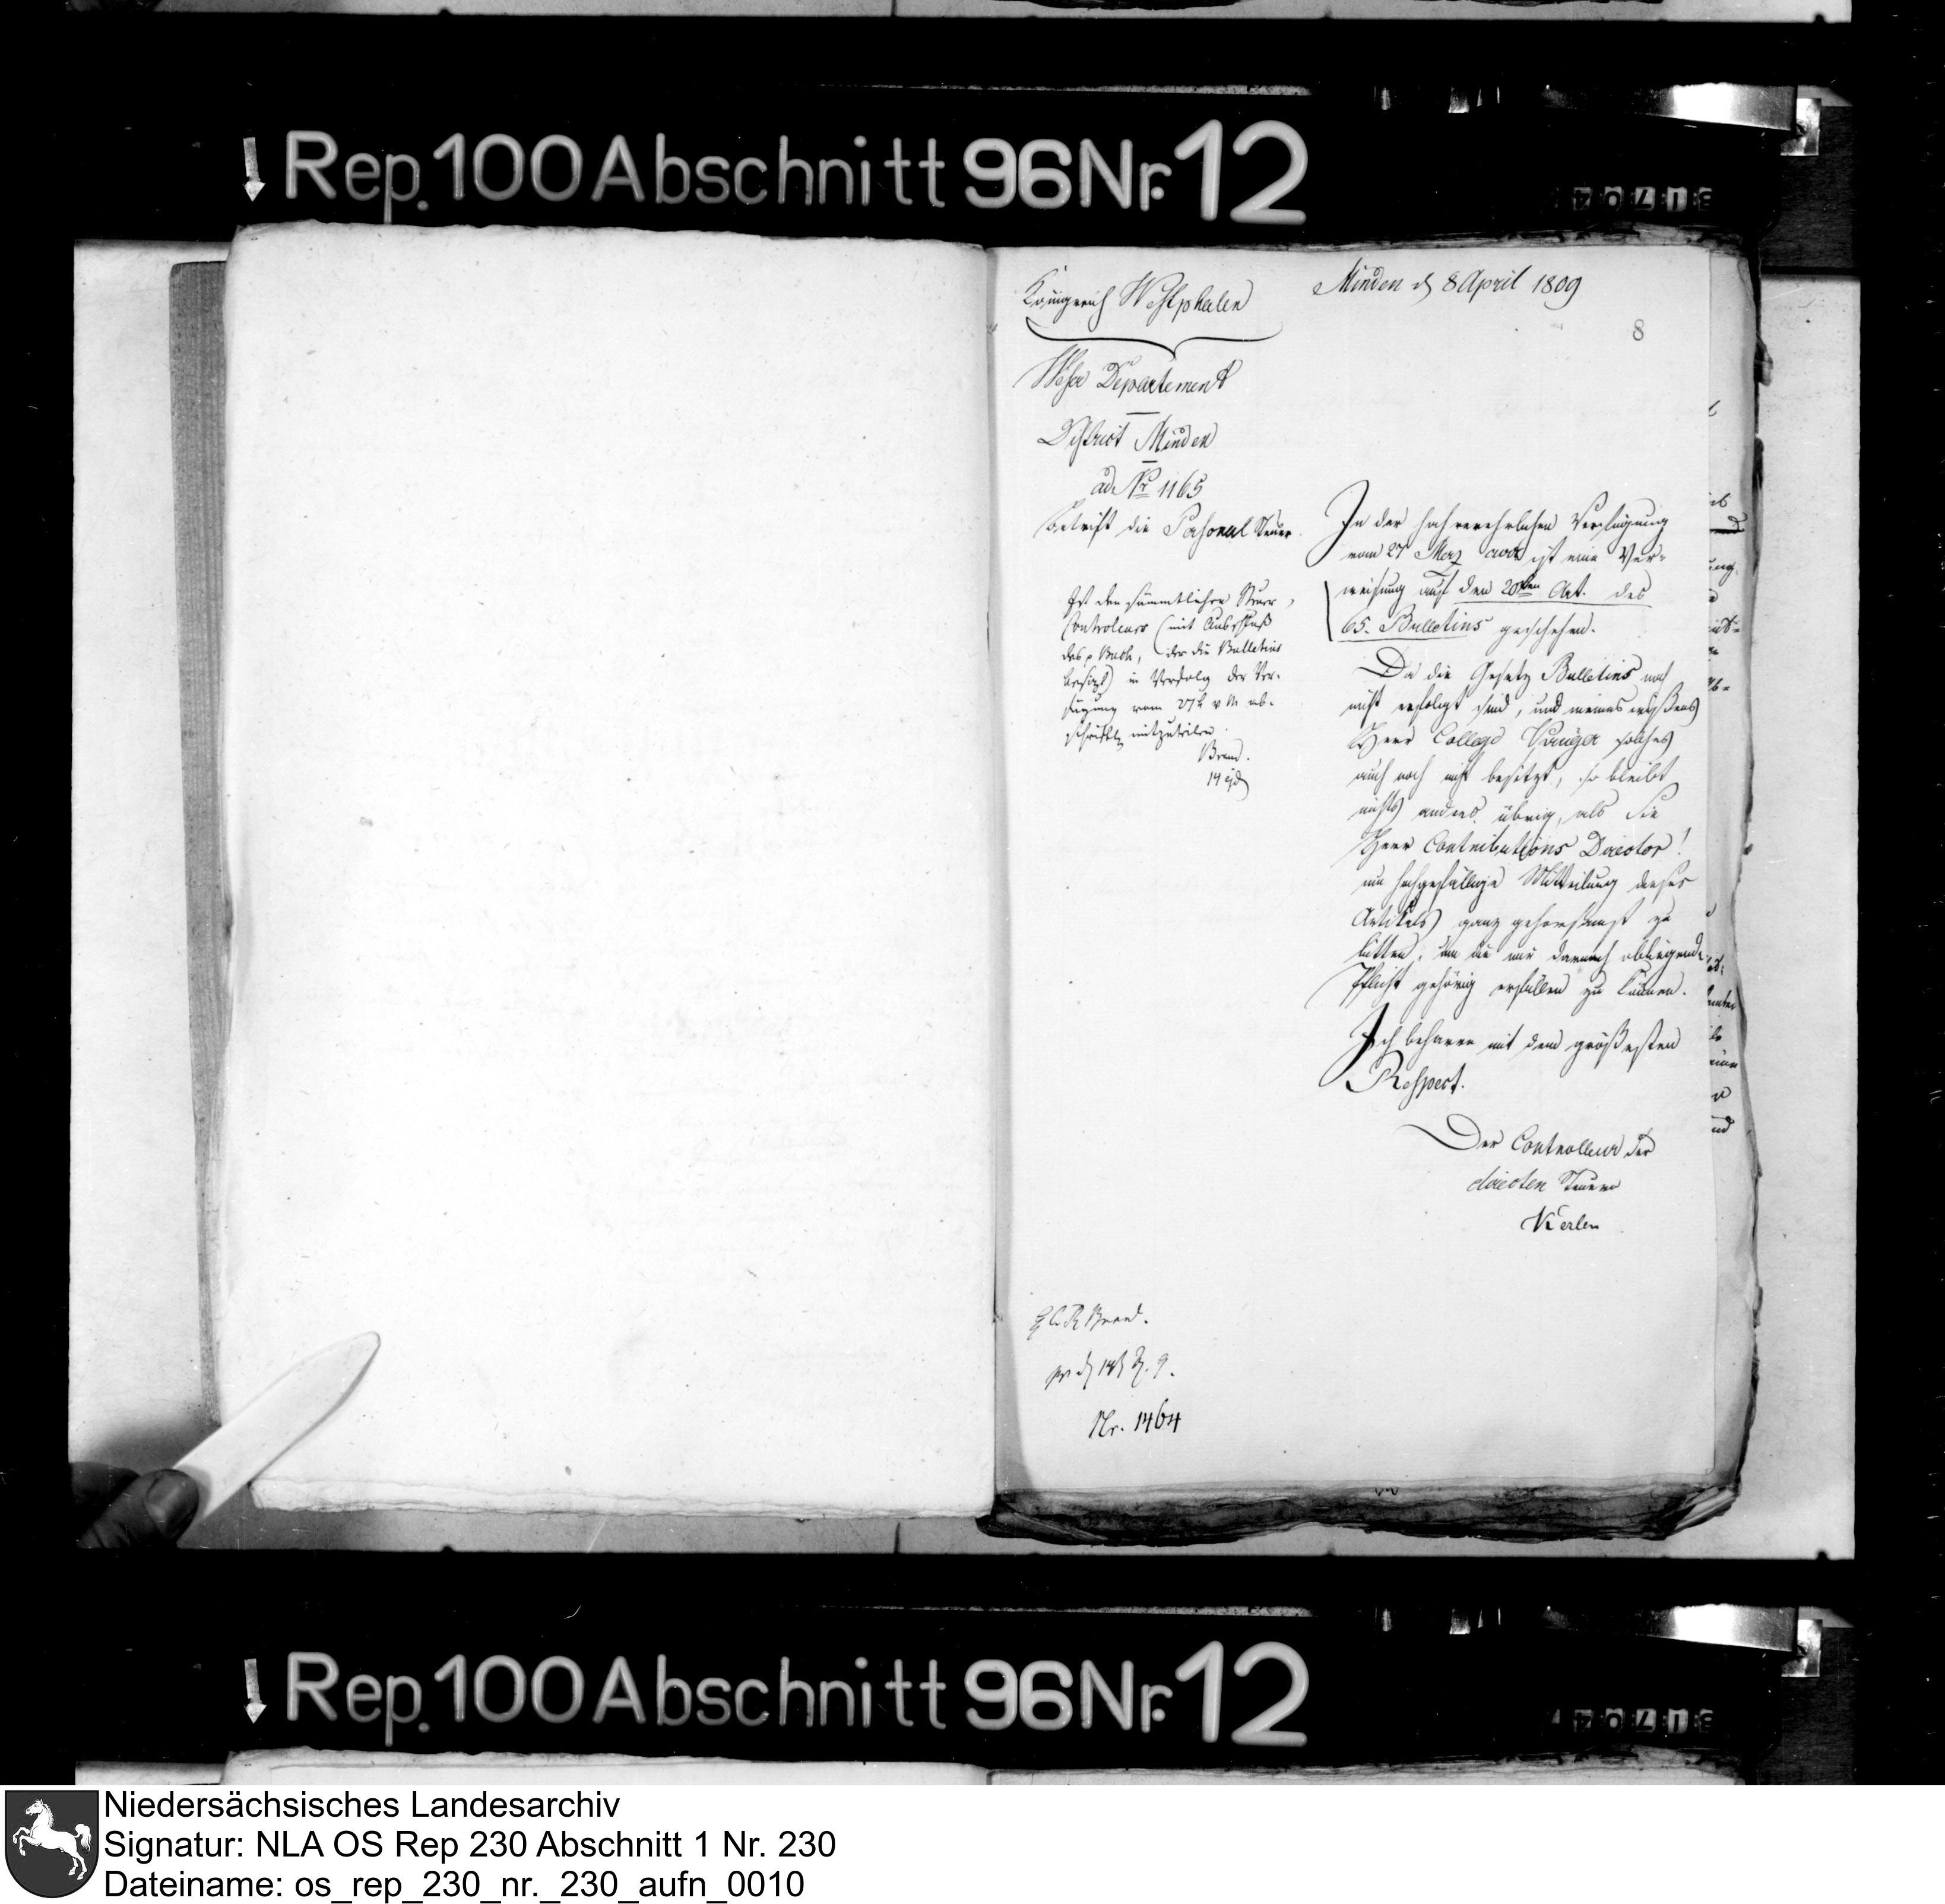 Rep. 100 Abschnitt 96 Nr. 12
31704
Königreich Westphalen
Minden d 8 April 1809
8
Weser Departement
District Minden
ad Nr 1165
betrift die Personal Steuer
In der hochverehrlichen Verfügung
vom 27 Merz ist eine Ver-
weisung auf den 20ten Art. des
65. Bulletins geschehen.
Da die Gesetz Bulletins noch
nicht erfolgt sind, und meines wißens
Herr College solches
auch noch nicht besitzt, so bleibt
nichts anders übrig, als Sie
Herr Contributions Director!
um hochgefällige Mitteilung dieses
Artikels ganz gehorsamst zu
bitten, um die mir darnach obliegende
Pflicht gehörig erfüllen zu können.
Ich beharre mit dem größesten
Respect.
Der Controlleur der
directen Steuern
Kerlen
Ist den sämmtlichen Steuer
Controleurs (mit Ausschluß
des p Bach, der die Bulletins
besizt) in Verfolg der Ver-
fügung vom 27t v M ab-
schriftl mitzuteilen.
Brand.
14 ejd
Brand.
Nr. 1464
Rep. 100 Abschnitt 96 Nr. 12
31704
Niedersächsisches Landesarchiv
Signatur: NLA OS Rep 230 Abschnitt 1 Nr. 230
Dateiname: os_rep_230_nr._230_aufn_0010